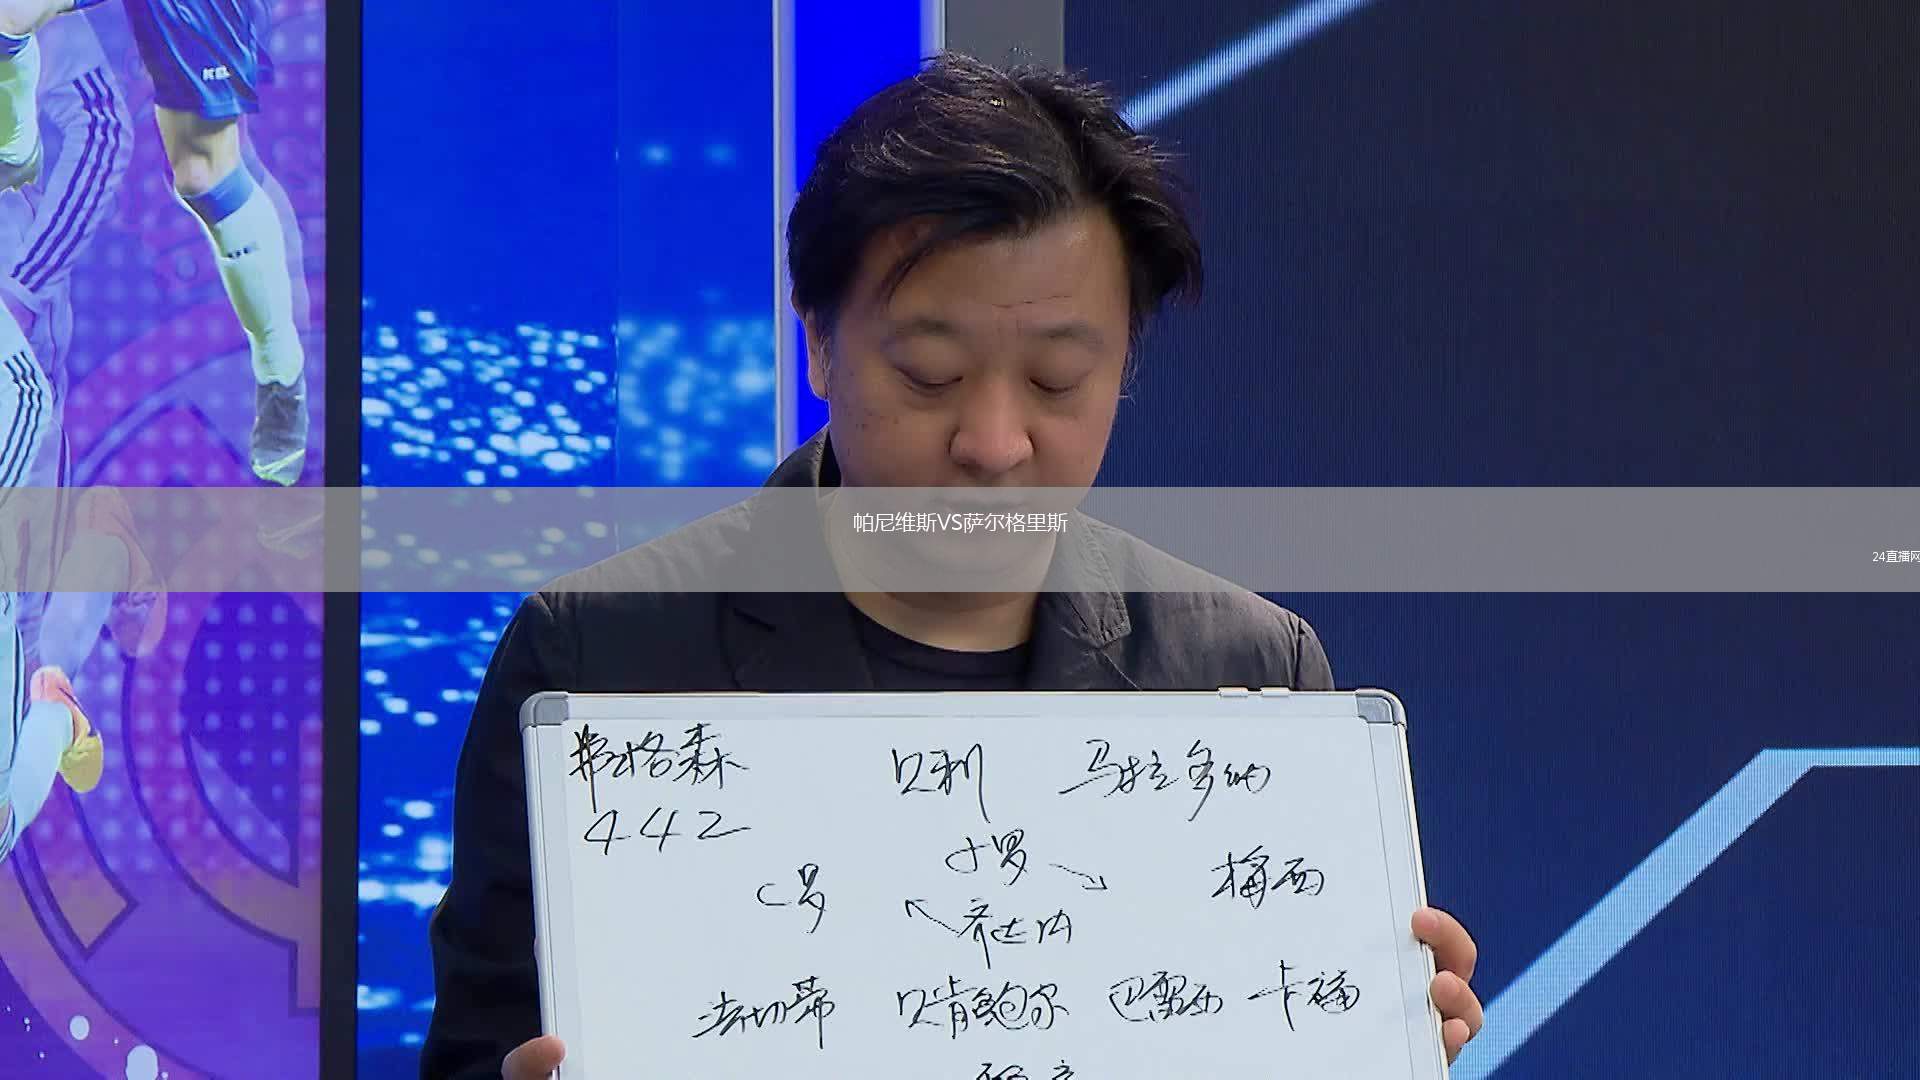 帕尼维斯VS萨尔格里斯
24直播网
弗格森 贝利 马拉多纳
442
小罗
C罗 梅西
齐达内
法切蒂 贝肯鲍尔 巴雷西 卡福